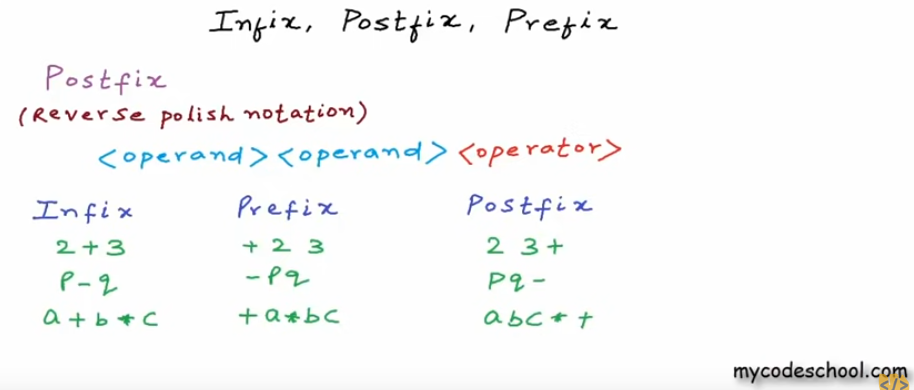 Infix, Postfix, Prefix
Postfix
(Reverse polish notation)
<operand> <operand> <operator>
Infix Prefix Postfix
2 + 3 + 2 3 2 3 +
p - q - p q p q -
a + b * c + a * b c a b c * +
mycodeschool.com
</>